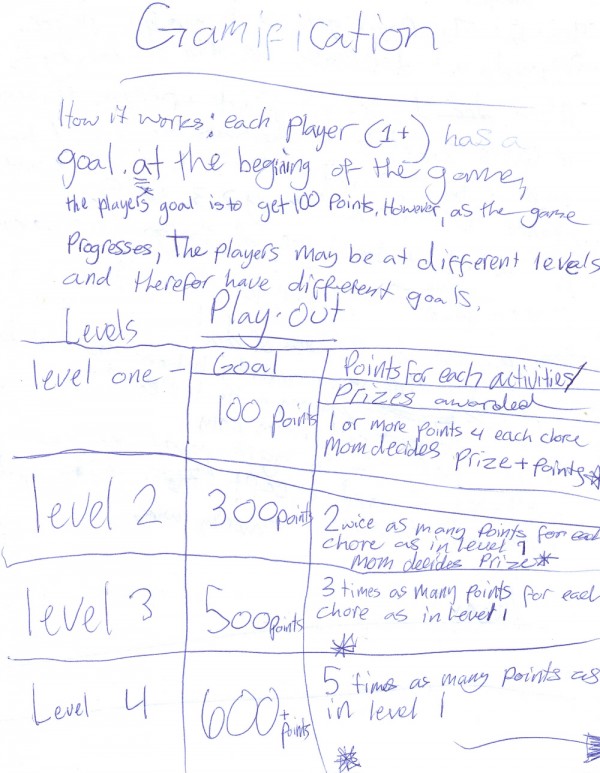 Gamification
How it works: each Player (1+) has a
goal. at the begining of the game,
the players goal is to get 100 Points. However, as the game
Progresses, The players may be at different levels
and therefor have different goals.
Levels Play-Out
level one - Goal Points for each activities/
Prizes awarded
100 Points 1 or more points 4 each chore
Mom decides Prize + points
level 2 300 points 2wice as many Points for each
chore as in level 1
Mom decides Prize*
level 3 500 Points 3 times as many Points for each
chore as in level 1
Level 4 600+ Points 5 times as many points as
in level 1